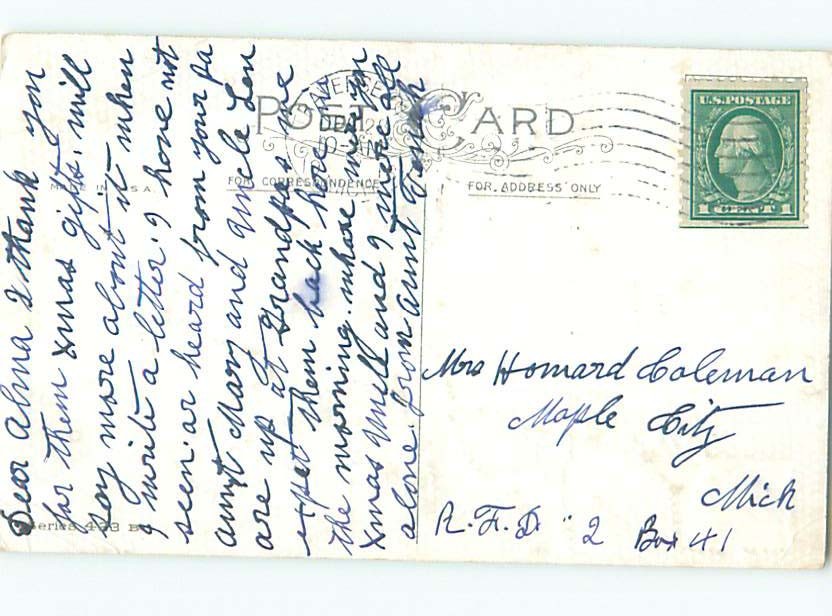 Dear Alma I thank you
for them xmas gifts. will
say more about it when
I write a letter. I have not
seen or heard from your pa
aunt Mary and Uncle Len
are up at Grandpas we
expet them back here in
the morning. whare was you
xmas Will and I were all
alone. from aunt
POST CARD
DEC 2
MADE IN U.S.A.
FOR CORRESPONDENCE
FOR ADDRESS ONLY
Series 433 B
U.S. POSTAGE
1 CENT 1
Mrs Homard Coleman
Maple City
Mich
R.F.D. 2 Box 41